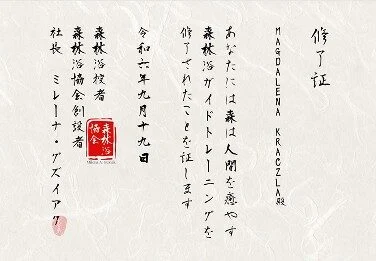 修了証
MAGDALENA KRACZLA殿
あなたには森は人間を癒やす
森林浴ガイドトレーニングを
修了されたことを証します
令和六年九月十九日
森林浴役者
森林浴協会創設者
社長 ミレーナ・グズイアク
森林浴
協会